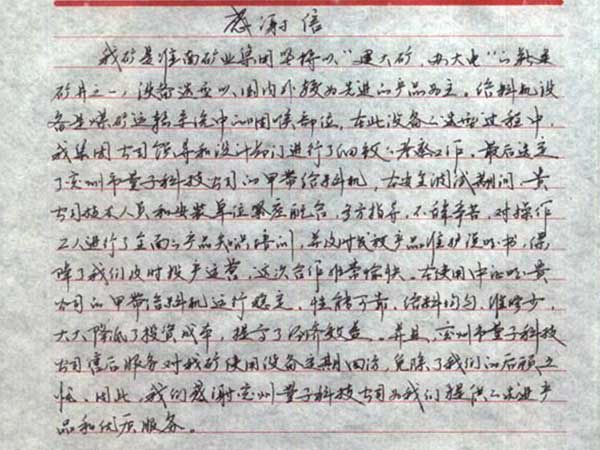 感谢信
我矿是淮南矿业集团坚持以“建大矿，办大电”的新建
矿井之一，设备选型以国内外较为先进的产品为主。给料机设
备是煤矿运转系统中的咽喉部位，在此设备的选型过程中，
我集团公司领导和设计部门进行了细致的考察工作。最后选定
了兖州市量子科技公司的甲带给料机，在安全调试期间，贵
公司技术人员和安装单位紧密配合，多方指导，不辞辛苦，对操作
工人进行了全面的产品知识培训，并及时发放产品维护说明书，保
障了我们及时投产运营，这次合作非常愉快。在使用中证明贵
公司的甲带给料机运行稳定，性能可靠，给料均匀，维修少，
大大降低了投资成本，提高了经济效益。并且，兖州市量子科技
公司售后服务对我矿使用设备定期回访，免除了我们的后顾之
忧。因此，我们感谢兖州量子科技公司为我们提供的先进产
品和优质服务。